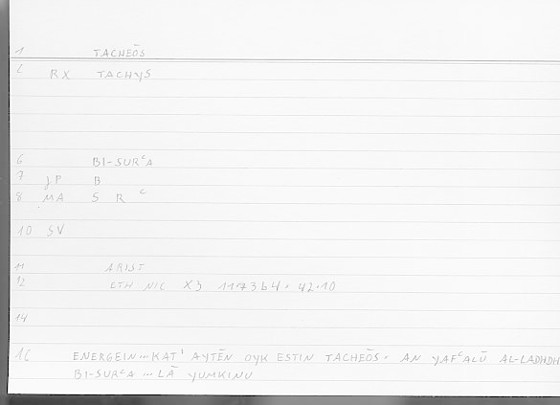 1 TACHEŌS
2 RX TACHYS
6 BI-SURᶜA
7 JP B
8 MA S R ᶜ
10 SV
11 ARIST
12 ETH NIC X3 1173b4 = 42.10
14
16 ENERGEIN ... KAT' AYTĒN OYK ESTIN TACHEŌS = AN YAFᶜALŪ AL-LADHDH
BI-SURᶜA ... LĀ YUMKINU